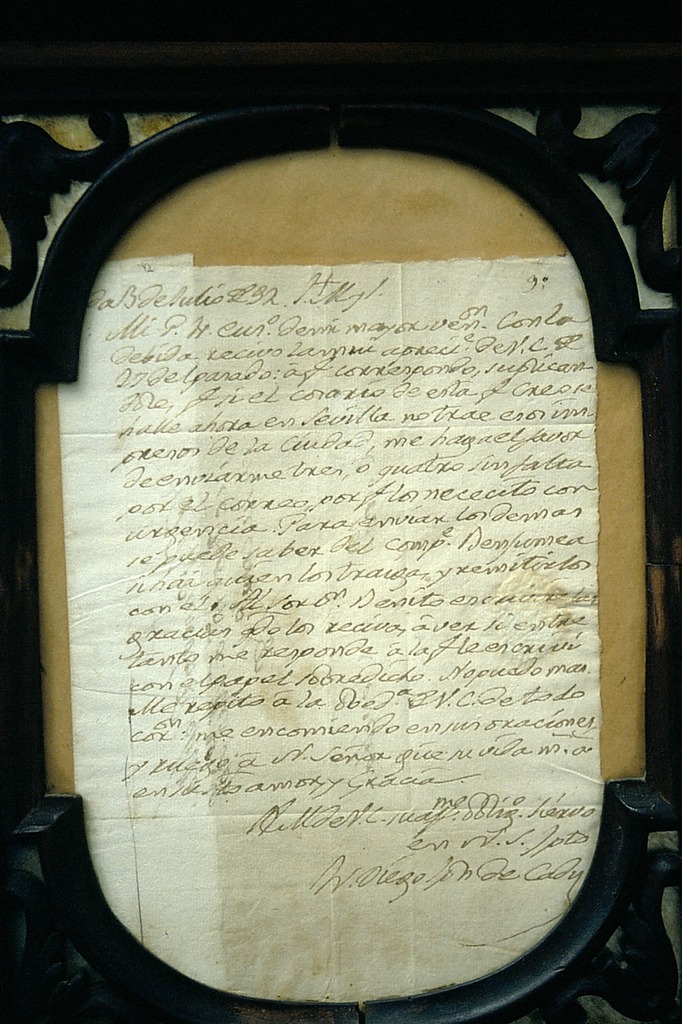 de Julio de 92.
Mi P. N. de mi mayor ven.on Con la
debida recivo la mui aprec. de V. C. de
27 del pasado: a q. correspondo, suplican
dole, q. si el cosario de esta q. creo se
halle ahora en Sevilla no trae esos im
presos de la Ciudad, me haga el favor
de enviarme tres, o quatro sin falta
por el correo, por q. los necesito con
urgencia. Para enviar los demas
se puede saber del comp.o Bensumea
si hai quien los traiga, y remitirlos
con el. Benito
gracias qdo los reciva, à ver si entre
tanto me responde à la q. le escrivi
con el papel sobredicho. No puedo mas.
Me repito à la obed.a de V. C. de todo
cor.on: me encomiendo en sus oraciones
y ruego à N. Señor que su vida m. a.
en su sto amor, y Gracia
B. L. M. de V. C. su obligo. siervo
en N. S. Jpto
Diego Jph de Cadiz